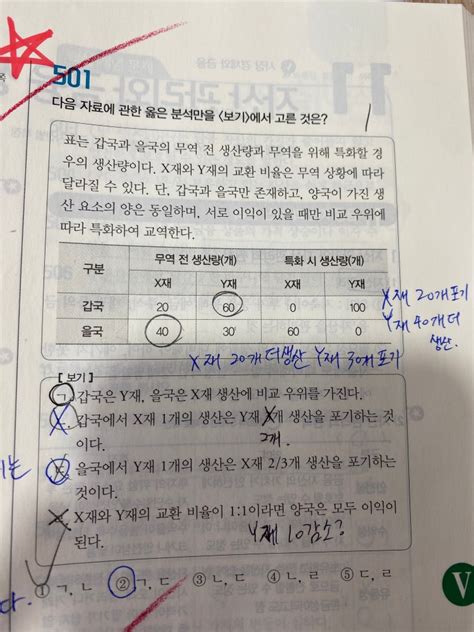 501
다음 자료에 관한 옳은 분석만을 〈보기〉에서 고른 것은?
표는 갑국과 을국의 무역 전 생산량과 무역을 위해 특화할 경
우의 생산량이다. X재와 Y재의 교환 비율은 무역 상황에 따라
달라질 수 있다. 단, 갑국과 을국만 존재하고, 양국이 가진 생
산 요소의 양은 동일하며, 서로 이익이 있을 때만 비교 우위에
따라 특화하여 교역한다.
구분 무역 전 생산량(개) 특화 시 생산량(개)
X재 Y재 X재 Y재
갑국 20 60 0 100
을국 40 30 60 0
X재 20개 포기
Y재 40개 더
생산.
X재 20개 더생산 Y재 30개 포기
[보기]
ㄱ. 갑국은 Y재, 을국은 X재 생산에 비교 우위를 가진다.
갑국에서 X재 1개의 생산은 Y재 개 생산을 포기하는 것
이다. 2개.
을국에서 Y재 1개의 생산은 X재 2/3개 생산을 포기하는
것이다.
X재와 Y재의 교환 비율이 1:1이라면 양국은 모두 이익이
된다. Y재 10감소?
① ㄱ, ㄴ ② ㄱ, ㄷ ③ ㄴ, ㄷ ④ ㄴ, ㄹ ⑤ ㄷ, ㄹ
다.
V